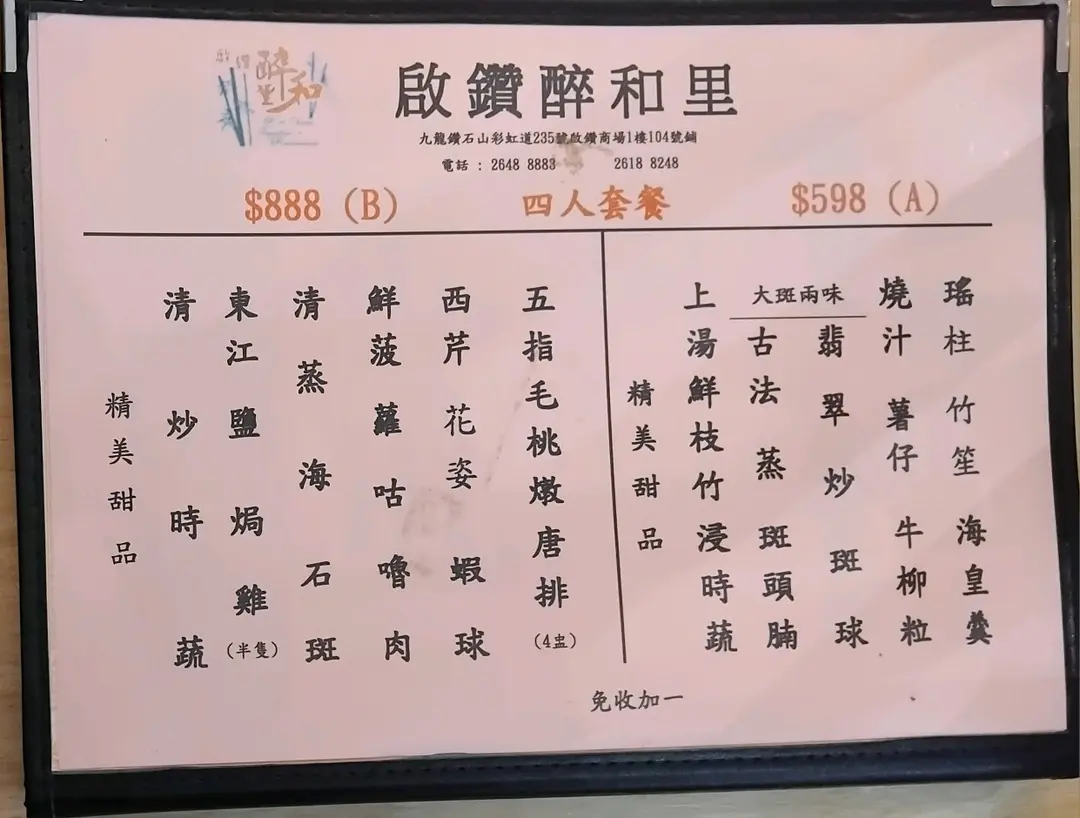 啟鑽醉和里
啟鑽醉和里
九龍鑽石山彩虹道235號啟鑽商場1樓104號鋪
電話：2648 8883 2618 8248
$888 (B) 四人套餐 $598 (A)
瑤柱竹笙海皇羹
燒汁薯仔牛柳粒
大斑兩味
翡翠炒斑球
古法蒸斑頭腩
上湯鮮枝竹浸時蔬
精美甜品
五指毛桃燉唐排(4盅)
西芹花姿蝦球
鮮菠蘿咕嚕肉
清蒸海石斑
東江鹽焗雞(半隻)
清炒時蔬
精美甜品
免收加一